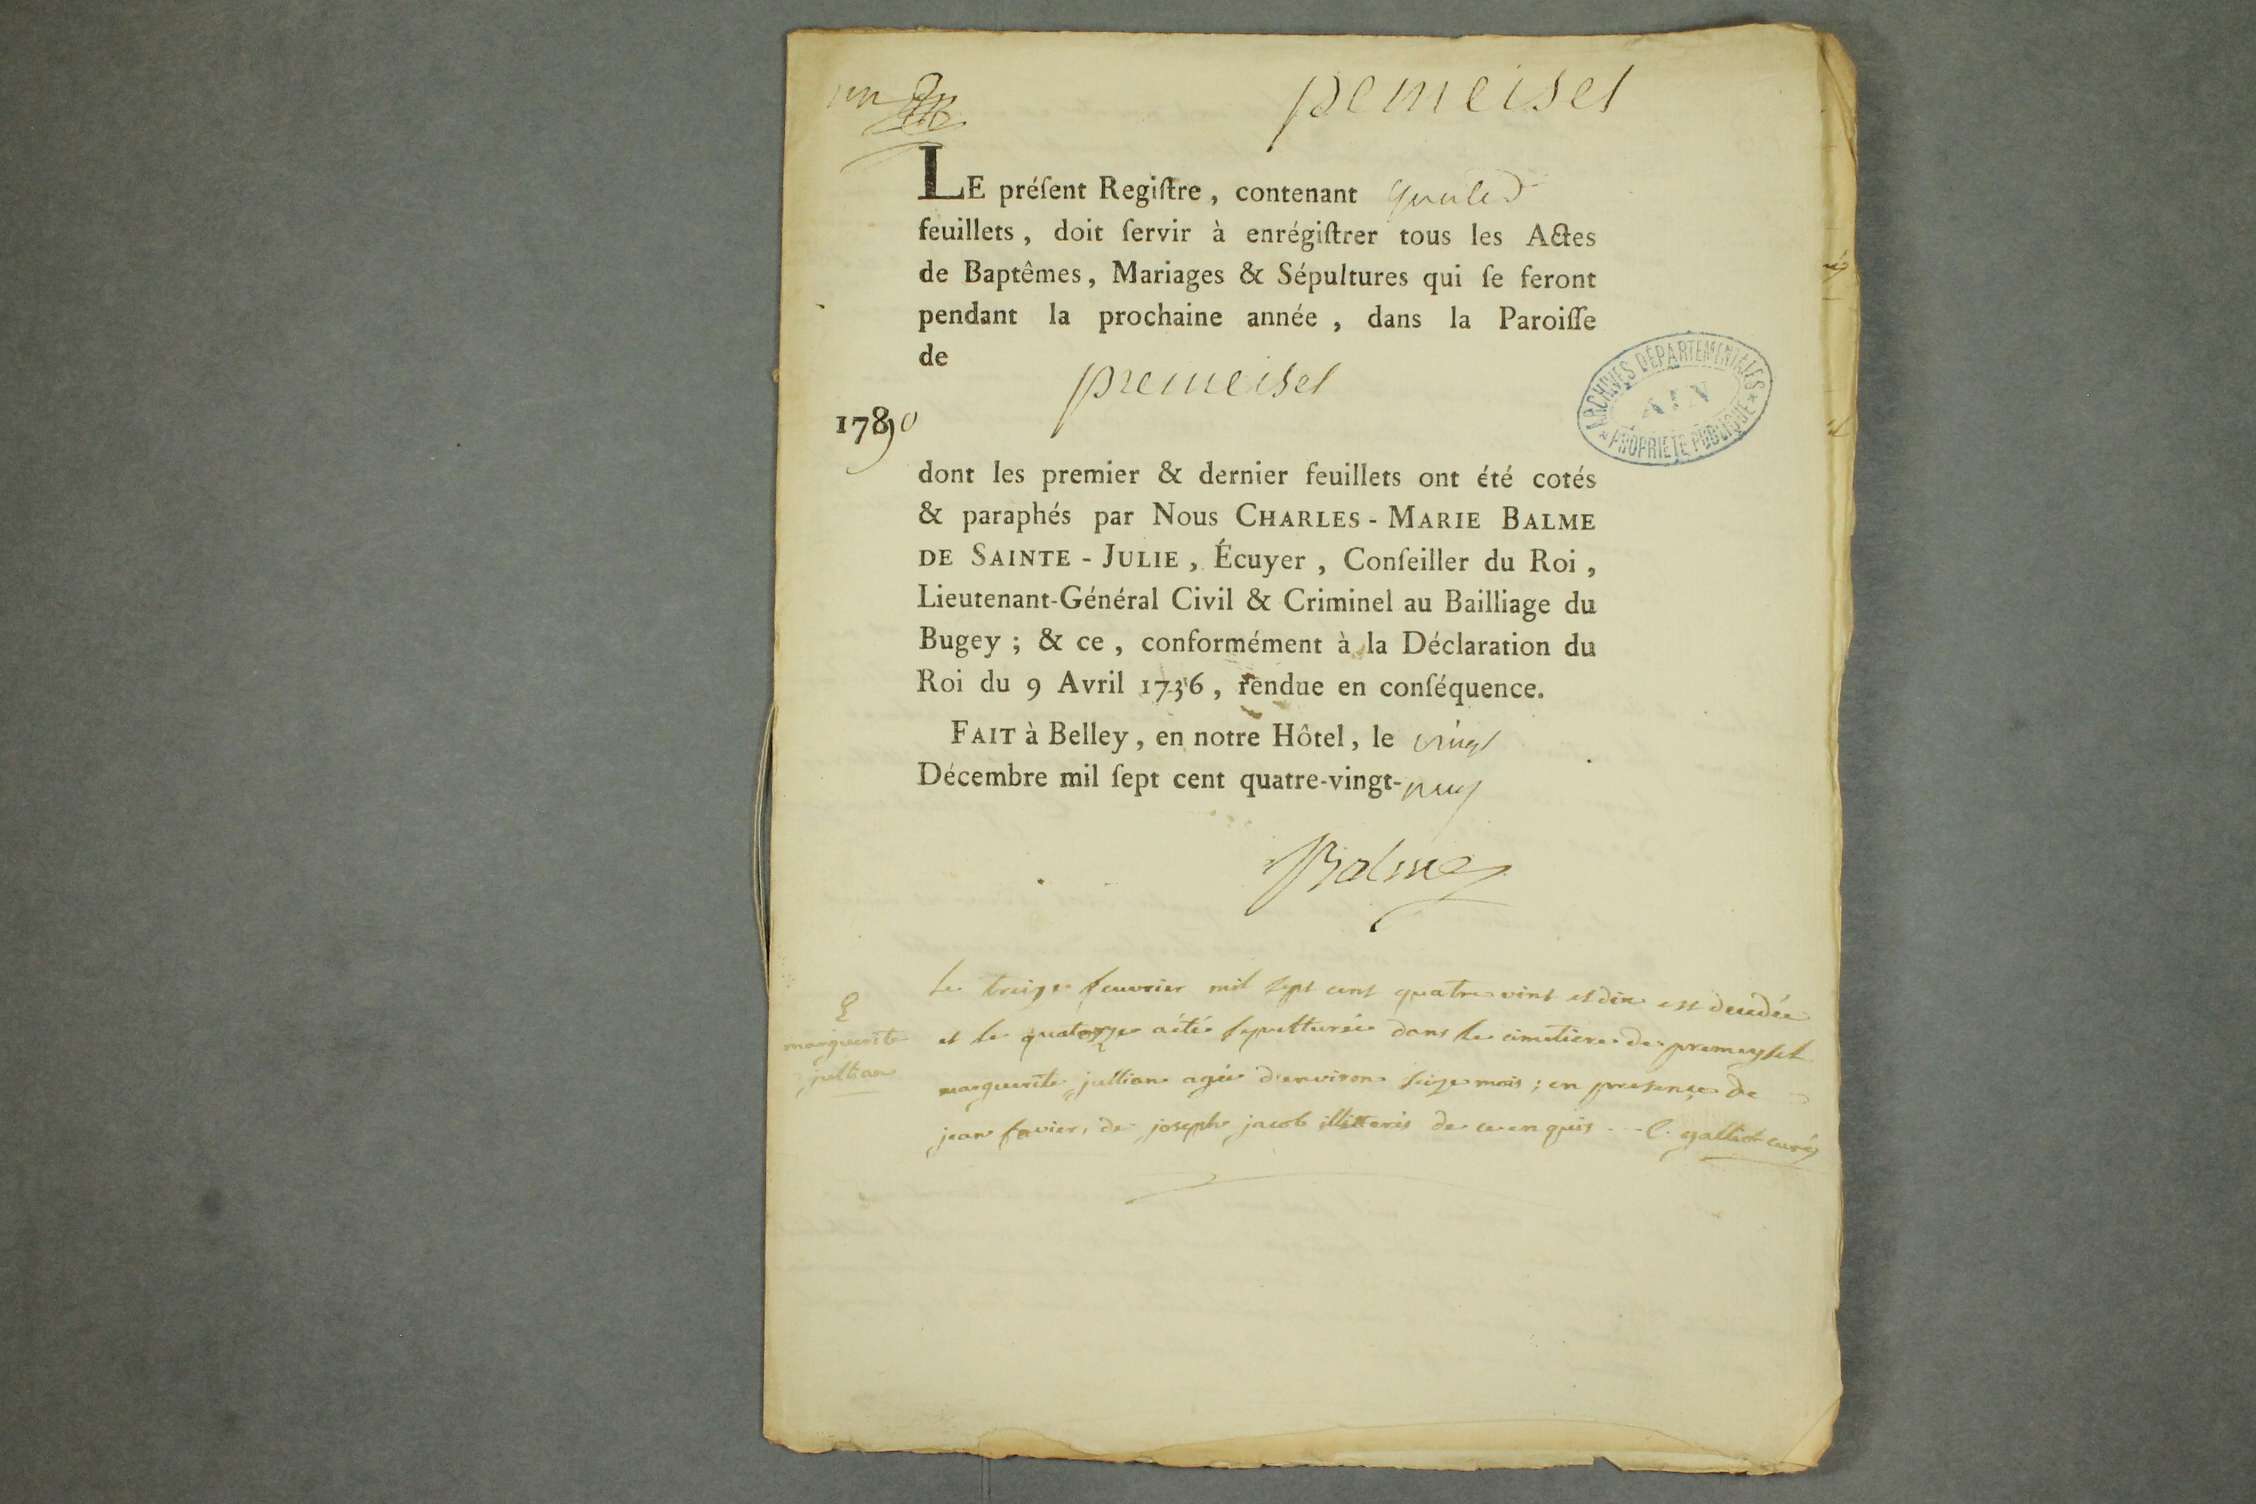 un
pemeisel
LE préſent Regiſtre, contenant quatre
feuillets, doit ſervir à enrégiſtrer tous les Actes
de Baptêmes, Mariages & Sépultures qui ſe feront
pendant la prochaine année, dans la Paroiſſe
de
premeisel
1790
ARCHIVES DÉPARTEMENTALES
AIN
* PROPRIÉTÉ PUBLIQUE *
dont les premier & dernier feuillets ont été cotés
& paraphés par Nous CHARLES - MARIE BALME
DE SAINTE - JULIE, Écuyer, Conſeiller du Roi,
Lieutenant-Général Civil & Criminel au Bailliage du
Bugey; & ce, conformément à la Déclaration du
Roi du 9 Avril 1736, rendue en conſéquence.
FAIT à Belley, en notre Hôtel, le vingt
Décembre mil ſept cent quatre-vingt-neuf
Balme
marguerite
jullian
Le treize feuvrier mil sept cent quatre vint et dix est decedée
et le quatorze a été sepulturée dans le cimetiere de premeysel
marguerite jullian agée d'environ seize mois; en presençe de
jean favier, de joseph jacob illitteris de ce enquis -- C. galliot curé